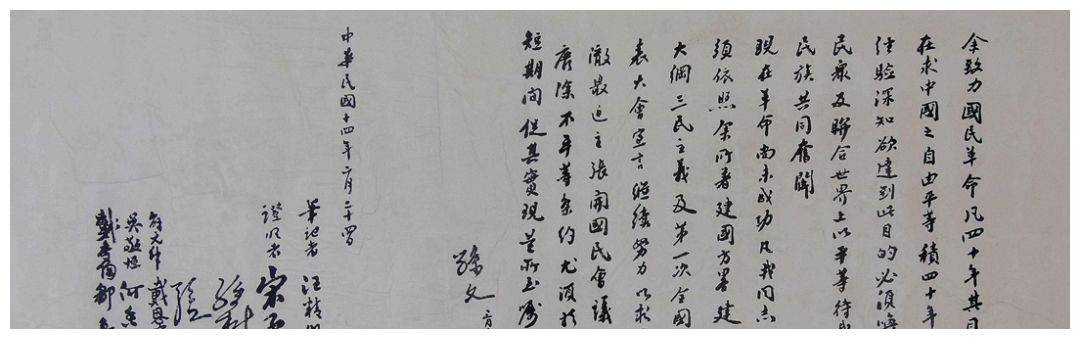 余致力國民革命凡四十年其目
在求中國之自由平等積四十年
經驗深知欲達到此目的必須喚
民眾及聯合世界上以平等待我
民族共同奮鬭
現在革命尚未成功凡我同志
須依照余所著建國方畧建
大綱三民主義及第一次全國
表大會宣言繼續努力以求
澈最近主張開國民會議
廢除不平等条約尤須於
短期間促其實現是所至囑
孫文
中華民國十四年二月二十四日
筆記者 汪精
證明者 宋子
孫科
吳敬恆 何香
戴恩